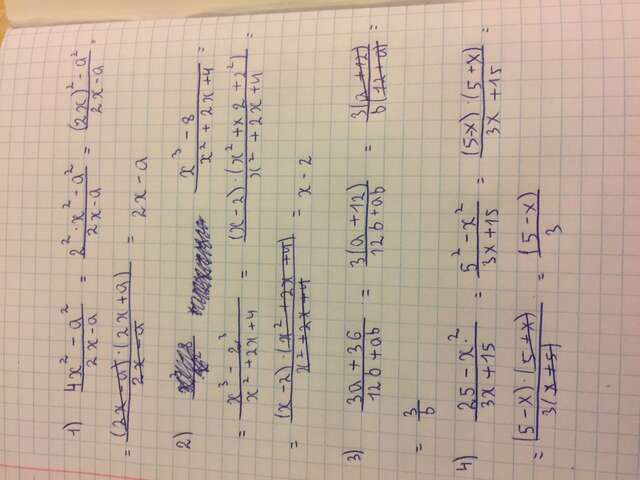 1) (4x² - a²)/(2x - a) = (2² · x² - a²)/(2x - a) = ((2x)² - a²)/(2x - a) .
= ((2x - a) · (2x + a))/(2x - a) = 2x - a
2) (x³ - 8)/(x² + 2x + 4) =
= (x³ - 2³)/(x² + 2x + 4) = ((x - 2) · (x² + x2 + 2²))/(x² + 2x + 4) =
= ((x - 2) · (x² + 2x + 4))/(x² + 2x + 4) = x - 2
3) (3a + 36)/(12b + ab) = 3(a + 12)/(12b + ab) = 3(a + 12)/b(12 + a) =
= 3/b
4) (25 - x²)/(3x + 15) = (5² - x²)/(3x + 15) = ((5 - x) · (5 + x))/(3x + 15) =
= ((5 - x) · (5 + x))/3(x + 5) = (5 - x)/3